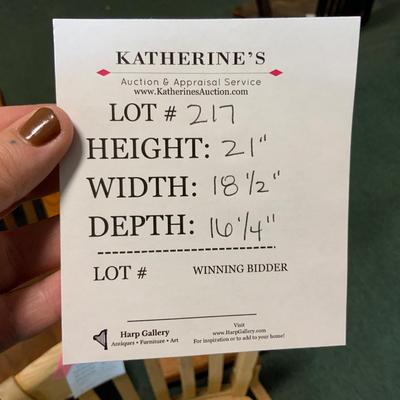 KATHERINE'S
Auction & Appraisal Service
www.KatherinesAuction.com
LOT # 217
HEIGHT: 21"
WIDTH: 18 1/2"
DEPTH: 16 1/4"
LOT # WINNING BIDDER
Harp Gallery
Antiques • Furniture • Art
Visit
www.HarpGallery.com
For inspiration or to add to your home!